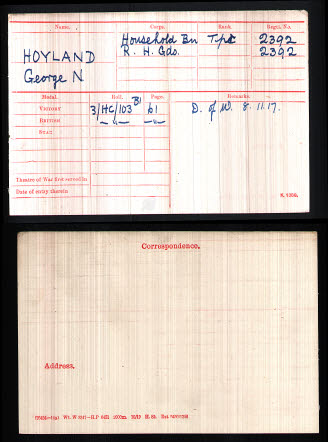 Name. Corps. Rank. Regtl. No.
HOYLAND Household Bn Tpr 2392
George N R. H. Gds. 2392
Medal. Roll. Page. Remarks.
VICTORY 3/HC/103 B1 61 D. of W. 8. 11. 17.
BRITISH —"— —"—
STAR
Theatre of War first served in
Date of entry therein
K. 1380.
Correspondence.
Address.